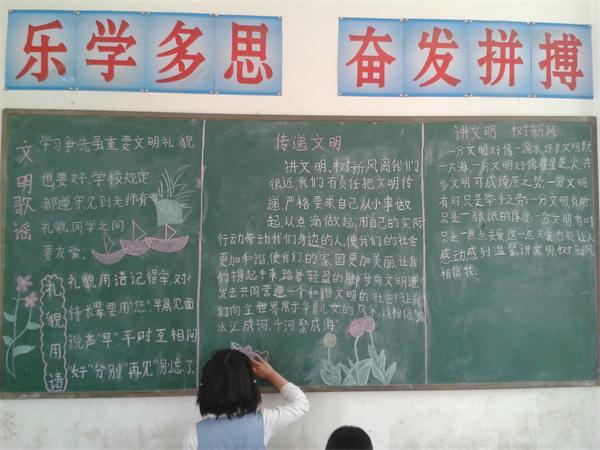 乐学多思
奋发拼搏
文明歌谣
学习争先虽重要文明礼貌
也要好,学校规定
都遵守见到老师有
礼貌,同学之间
要友爱。
礼貌用语
礼貌用语记得牢,对
待长辈要用"您",早晨见面
说声"早"平时互相间
"好"分别"再见"别忘了
传递文明
讲文明、树新风离我们
很近,我们有责任把文明传
递,严格要求自己从小事做
起,从点滴做起,用自己的实际
行动带动我们身边的人,使我们的社会
更加和谐,使我们的家园更加美丽,让我
们携起手来,踏着轻盈的脚步向文明进
发去共同营造一个和谐文明的社会!让我
们向主世界展示华夏儿女的风采,请相信
水汇成河,千河聚成海
讲文明 树新风
一分文明好像一滴水,许多文明就
一片海,一分文明好像星星之火,许
多文明可成燎原之势,一分文明
有时只是举手之劳,一分文明有时
只是一张纸的厚度,一分文明有时
只是一点点关爱,这一点关爱也能让人
感动感到温馨,讲文明树新风
相信我